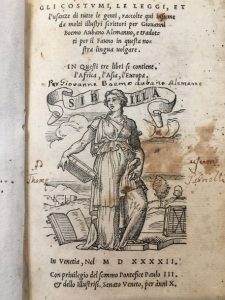 GLI COSTUMI, LE LEGGI, ET
l'usanze di tutte le genti, raccolte qui insieme
da molti illustri scrittori per Giovanni
Boemo Aubano Alemanno, e tradotte
per il Fauno in questa nostra
lingua volgare.
IN Questi tre libri si contiene
l'Africa, l'Asia, l'Europa.
Per Giovanne Boemo Aubano Alemanno
SIBILLA
Thoma
In Venetia, Nel M D XXXXII.
Con privilegio del sommo Pontefice Paulo III.
& dello Illustriss. Senato Veneto, per anni X.